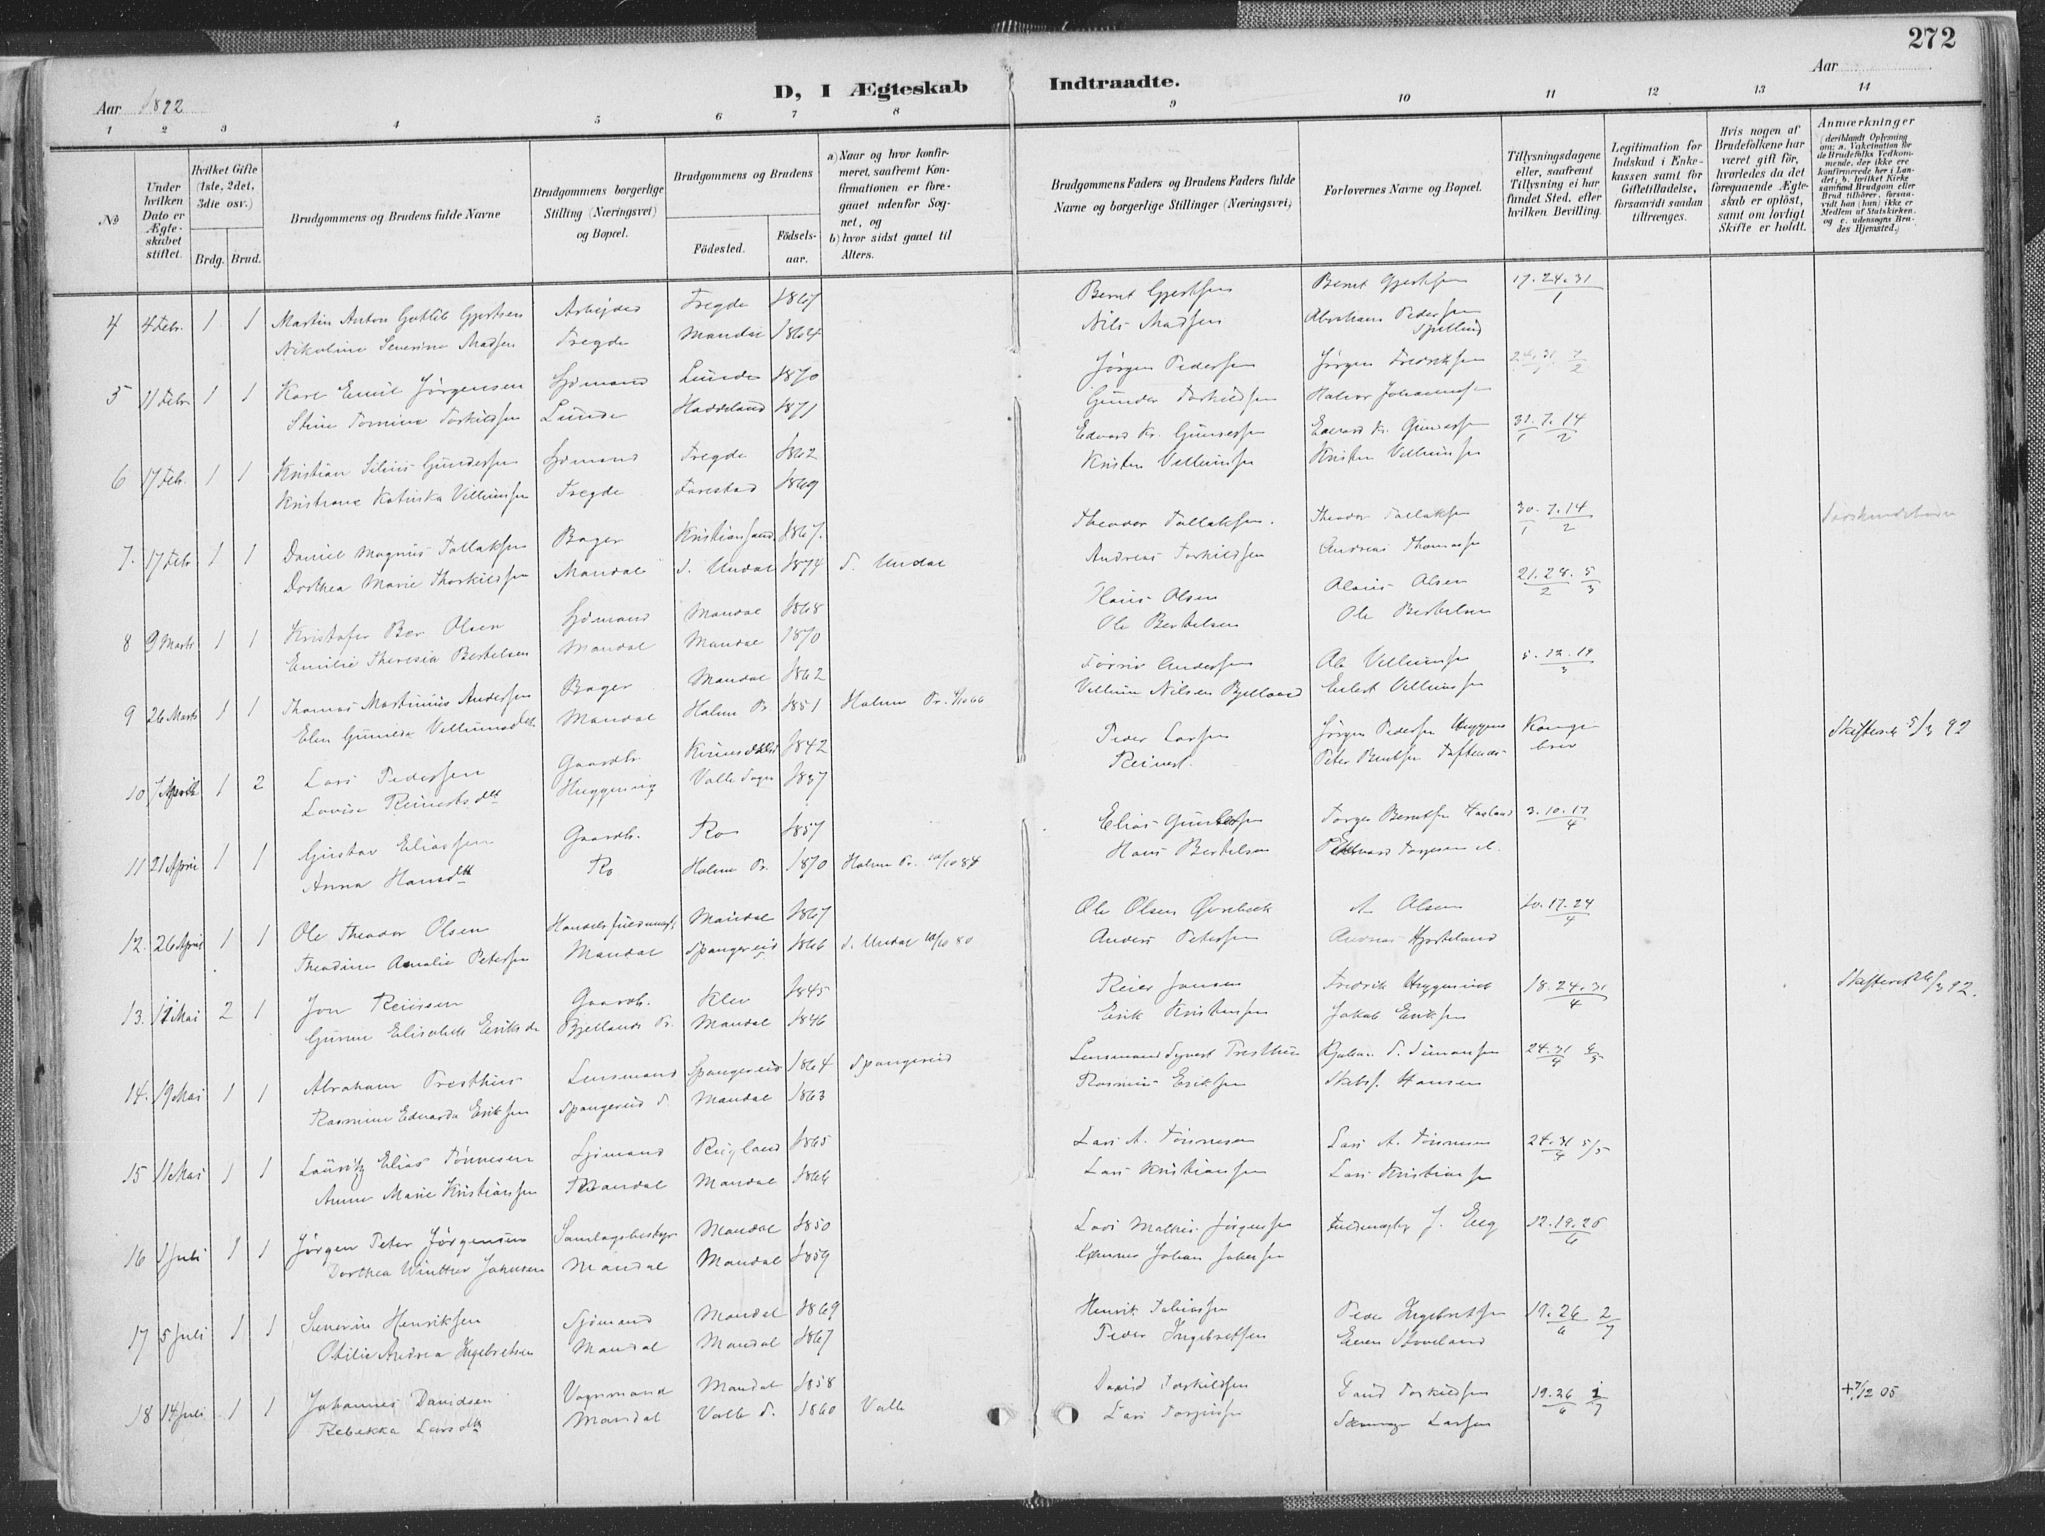 272
D, I Ægteskab Indtraadte.
Aar 1892
Aar
1 2 3 4 5 6 7 8 9 10 11 12 13 14
No
Under hvilken Dato er Ægteskabet stiftet.
Hvilket Gifte (1ste, 2det, 3die osv.)
Brdg. Brud.
Brudgommens og Brudens fulde Navne
Brudgommens borgerlige Stilling (Næringsvei) og Bopæl.
Brudgommens og Brudens
Födested.
Födselsaar.
a) Naar og hvor konfirmeret, saafremt Konfirmationen er foregaaet udenfor Sognet, og
b) hvor sidst gaaet til Alters.
Brudgommens Faders og Brudens Faders fulde Navne og borgerlige Stillinger (Næringsvei)
Forlovernes Navne og Bopæl.
Tillysningsdagene eller, saafremt Tillysning ei har fundet Sted, efter hvilken Bevilling.
Legitimation for Indskud i Enkekassen samt for Giftetilladelse, forsaavidt saadan tiltrænges.
Hvis nogen af Brudefolkene har været gift för, hvorledes da det foregaaende Ægteskab er oplöst, samt om lovligt Skifte er holdt.
Anmærkninger (deriblandt Oplysning om: a. Vakcination for de Brudefolks Vedkommende, der ikke ere konfirmerede her i Landet; b. hvilket Kirkesamfund Brudgom eller Brud tilhörer, forsaavidt han (hun) ikke er Medlem af Statskirken, og c. udensogns Brudes Hjemsted.)
4 4 Febr. 1 1 Martin Anton Gotlib Gjertsen Arbejder Tregde 1867 Bernt Gjertsen Bernt Gjertsen 17.24.31/1
Nikoline Severine Madsen Tregde Mandal 1864 Nils Madsen Abraham Pedersen
5 11 Febr 1 1 Karl Emil Jörgensen Sjömand Lunde 1870 Jörgen Pedersen Jörgen Fredriksen 24.31/1 7/2
Stine Tomine Torkildsen Lunde Haddeland 1871 Gunder Torkildsen Halvor Johannesen
6 17 Febr. 1 1 Kristian Silius Gundersen Sjömand Tregde 1862 Edvard Kr. Gundersen Edvard Kr. Gundersen 31/1 7.14/2
Kristiane Katinka Villumsen Tregde Farestad 1869 Kristen Villumsen Kristen Villumsen
7. 17 Febr 1 1 Daniel Magnus Tallaksen Bager Kristiansand 1867. Theodor Tallaksen. Theodor Tallaksen 30/1 7.14/2
Dorthea Marie Thorkildsen Mandal S. Undal 1874 S. Undal Andreas Torkildsen Andreas Thomassen
8 9 Marts 1 1 Kristofer Ber Olsen Sjömand Mandal 1868 Hans Olsen Alaus Olsen 21.28/2 5/3
Emilie Theresia Bertelsen Mandal Mandal 1870 Ole Bertelsen Ole Bertelsen
9 26 Marts 1 1 Thomas Martinius Andersen Bager Mandal 1862 Andersen Ole Villumsen 5.12.19/3
Elen Gunelie Villumsdtr Mandal Holum Pr. 1851 Holum Pr. 4/10 66 Villum Nilsen Bjelland Villumsen
10 7 April 1 2 Lars Pedersen Gaardbr. 1842 Peder Larsen Jörgen Pedersen Huggens Kongebrev Skifteret 5/3 92
Lovise Reinertsdtr Huggening Valle Sogn 1837 Reinert.
11 21 April 1 1 Gustav Eliassen Gaardbr. Ro 1857 Elias Gundersen Torger Berntsen 3.10.17/4
Anna Hansdtr Ro Holum Pr. 1870 Holum Pr. 84 Hans Bertelsen
12. 26 April 1 1 Ole Theodor Olsen Handelsfuldmægt. Mandal 1867 Ole Olsen Øvrebeck A Olsen 10.17.24/4
Theodine Amalie Petersen Mandal Spangereid 1866 S. Undal 80 Anders Petersen Andreas Hjorteland
13. Mai 2 1 Jon Reiersen Gaardbr. Klev 1845 Reier Jonsen Fredrik 18.24.31/4 Skifteret 26/3 92.
Elisabeth Eriksdr Bjellands Pr. Mandal 1846 Erik Kristensen Jakob Eriksen
14. 9 Mai 1 1 Abraham Presthus Lensmand Spangereid 1864 Spangereid Lensmand Presthus S. Simonsen 24.31/4
Rasmine Edvarda Eriksen Spangereid S. Mandal 1863 Rasmus Eriksen Skibsf. Hansen
15 11 Mai 1 1 Lauritz Elias Tönnesen Sjömand Rugland 1865 Lars A. Tönnesen Lars A. Tönnesen 24.31/4 5/5
Anne Marie Kristiansen Mandal Mandal 1866 Lars Kristiansen Lars Kristiansen
16 1 Juli 1 1 Jørgen Peter Jørgensen Samlagsbestyr Mandal 1850 Lars Mathis Jørgensen Fuldmægtig J. Eeg 12.19.26/6
Dorthea Winther Johnsen Mandal Mandal 1859 Johan Johnsen
17 5 Juli 1 1 Severin Henriksen Sjömand Mandal 1869 Henrik Tobiassen Peder Ingebretsen 19.26/6 2/7
Otilie Andrea Ingebretsen Mandal Mandal 1867 Peder Ingebretsen Stoveland
18 14 Juli 1 1 Johannes Davidsen Vognmand Mandal 1858 David Torkildsen David Torkildsen 19.26/6 +7/12 05
Rebekka Larsdtr Mandal Valle S. 1860 Valle Lars Larsen